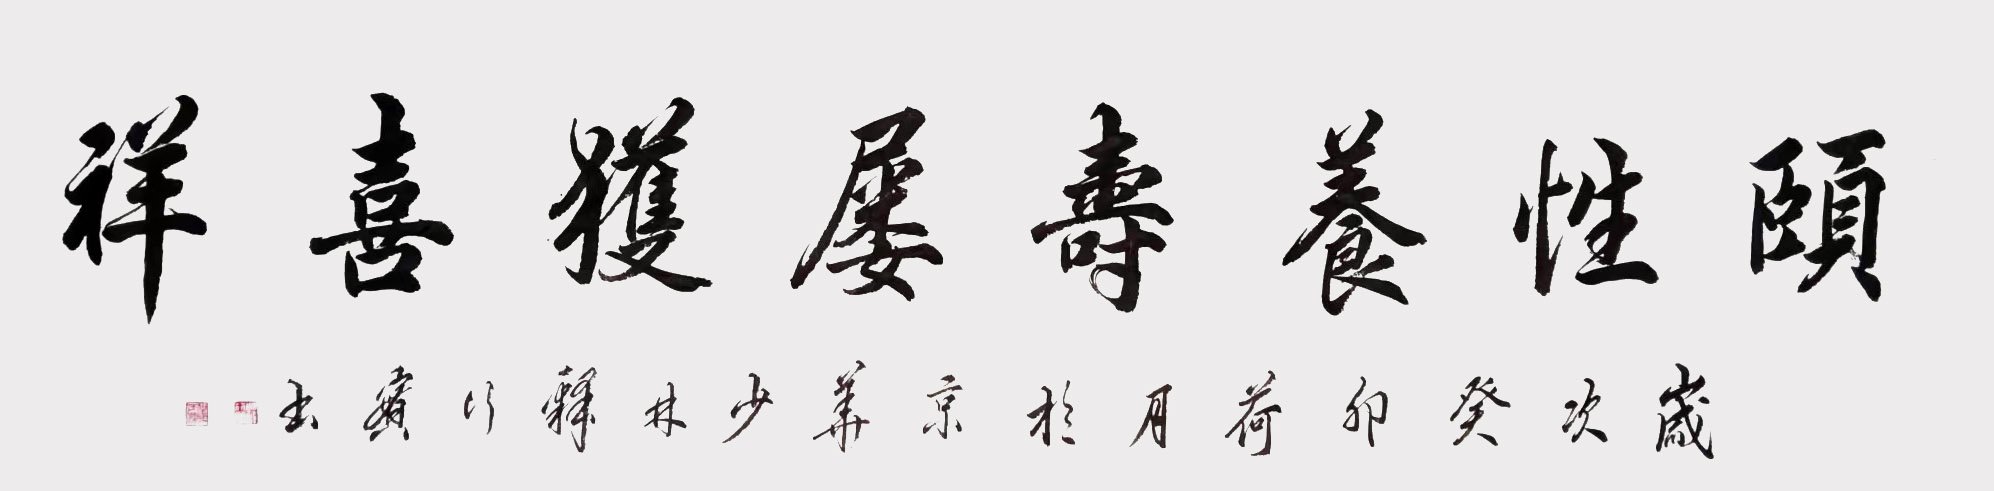 頤性養壽屡獲喜祥
歲次癸卯荷月於京華少林釋行賓书